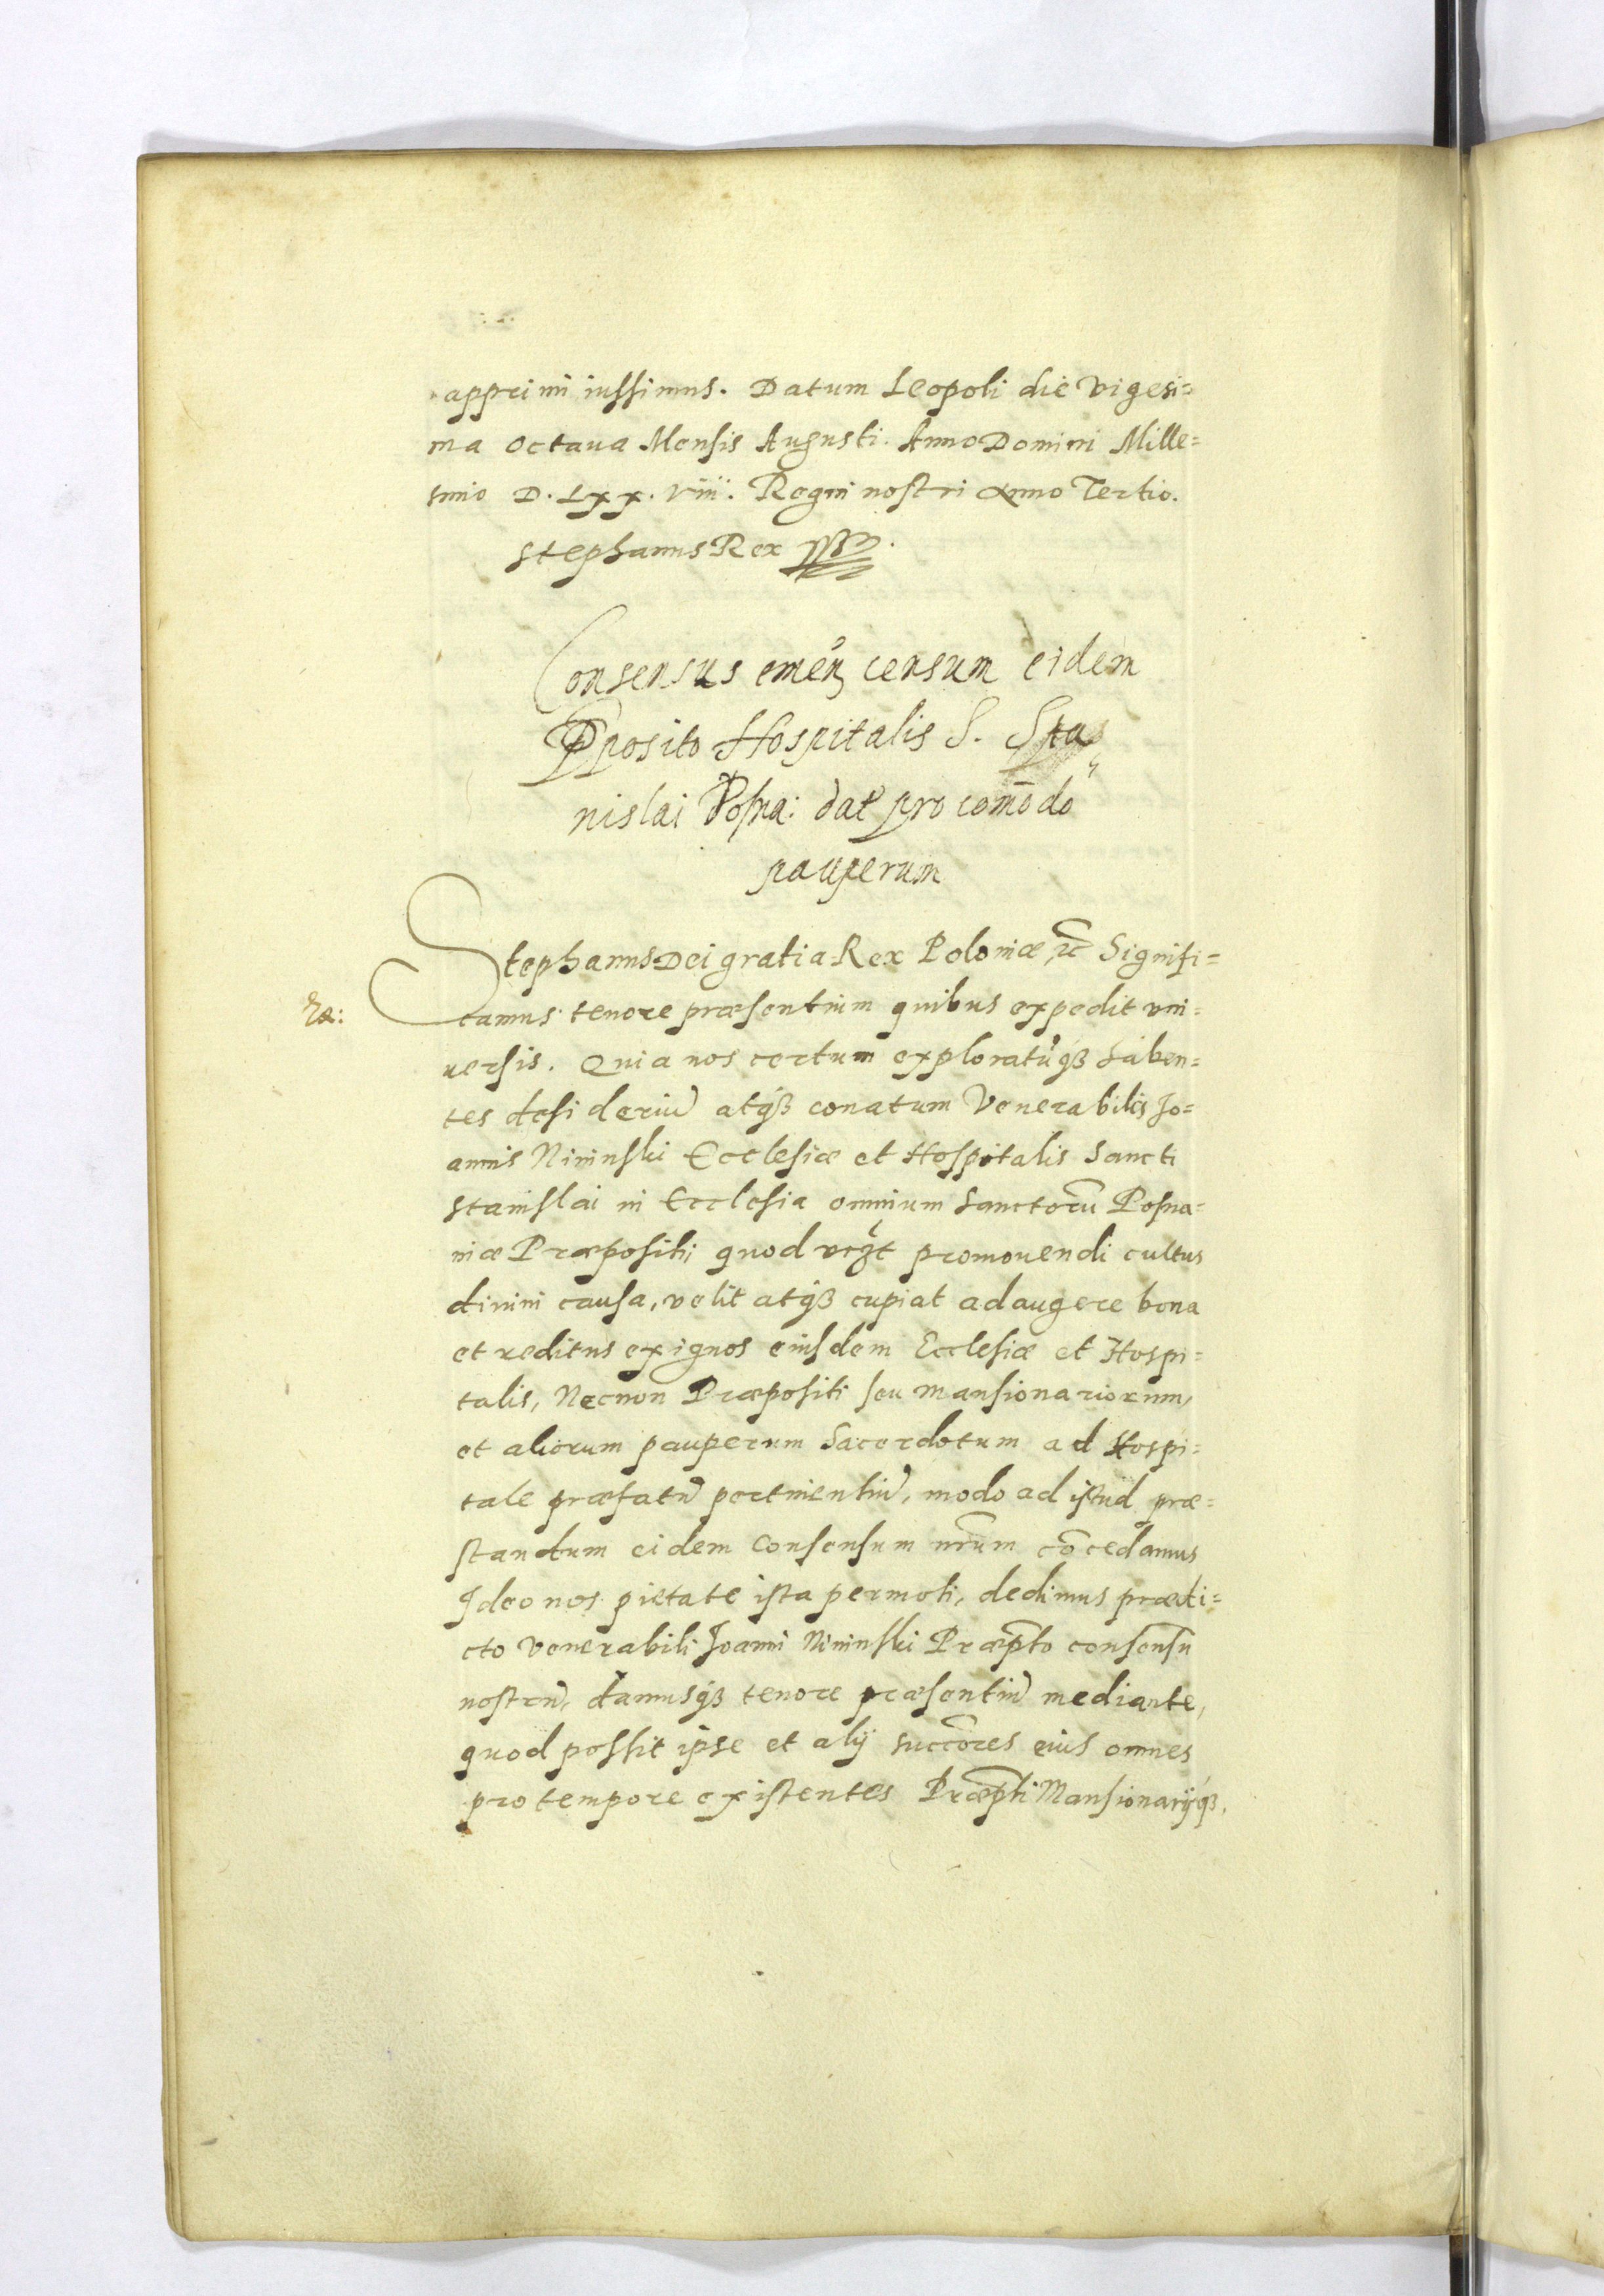 apprimi iussimus. Datum Leopoli die Vigesi=
ma Octaua Mensis Augusti. Anno Domini Mille=
simo D. Lxx. viii. Regni nostri Anno Tertio.
Stephanus Rex
Consensus emen censum eidem
Pposito Hospitalis S. Sta
nislai Posna: dat pro comodo
pauperum
Stephanus Dei gratia Rex Poloniæ, ꝛc Signifi=
camus tenore præsentium quibus expedit vni=
uersis. Quia nos certum exploratūqȝ haben=
tes desideriū atqȝ conatum Venerabilis Jo=
annis Nininski Ecclesiæ et Hospitalis Sancti
Stanislai in Ecclesia omnium Sanctorū Posna=
niæ Præpositi, quod promouendi cultus
diuini causa, velit atqȝ cupiat adaugere bona
et reditus exiguos eiusdem Ecclesiæ et Hospi=
talis, Necnon Præpositi seu mansionariorum,
et aliorum pauperum Sacerdotum ad Hospi=
tale præfatū pertinentiū, modo ad istud præ=
standum eidem Consensum nr̄um cōcedamus
Ideo nos pietate ista permoti, dedimus prædi=
cto Venerabili Joanni Nininski Præpto consensū
nostrū, damusqȝ tenore præsentiū mediante,
quod possit ipse et alij succōres eius omnes
pro tempore existentes Præpti Mansionarijqȝ,